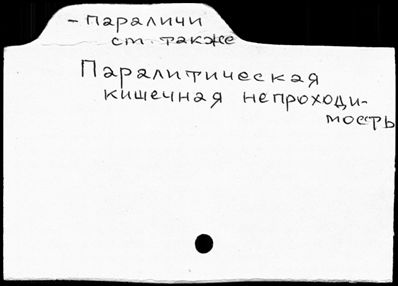 - Параличи
см. также
Паралитическая
кишечная непроходи-
мость